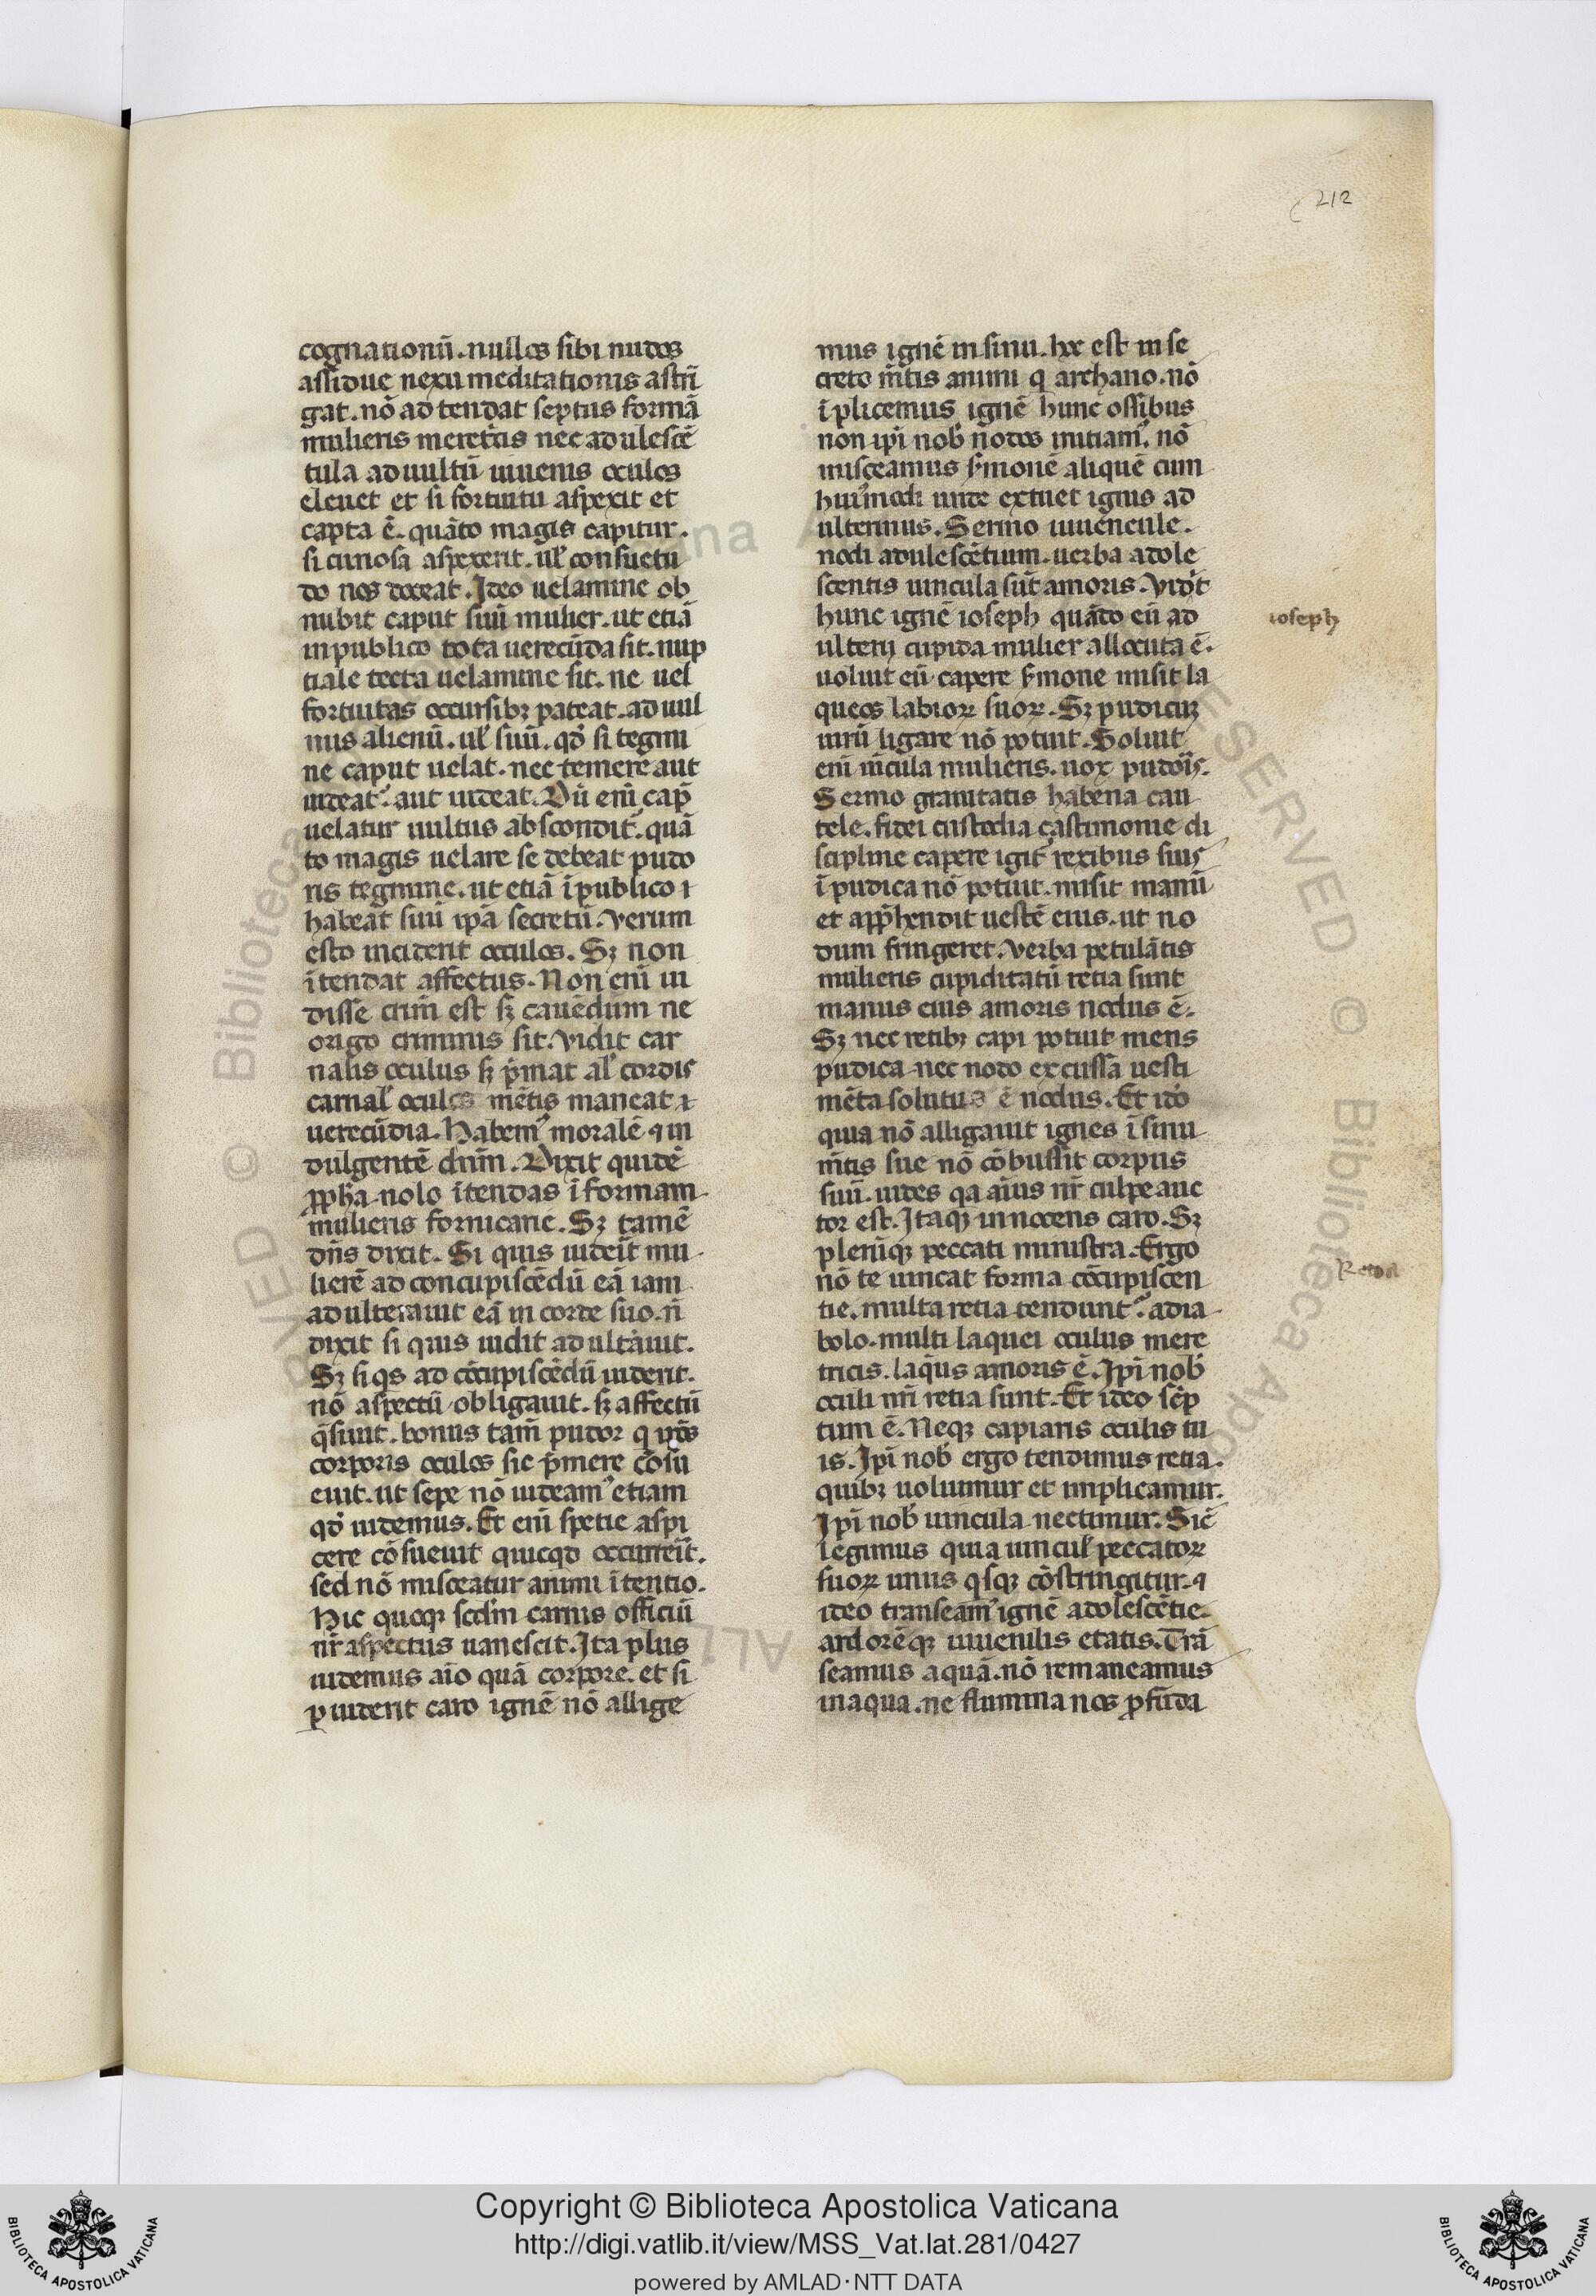 212
cognationū. nullos sibi nudos
assidue nexu meditationis astrī
gat. nō ad tendat septus formā
mulieris meret͛cis nec adulescē
tula ad uultū iuuenis oculos
eleuet et si fortuitu aspexit et
capta ē. quāto magis capitur.
si curiosa aspexerit. ul̓ consuetu
do nos doceat. Ideo uelamine ob
nubit caput suū mulier. ut etiā
in publico tota uerecūda sit. nup
tiale tecta uelamine sit. ne uel
fortuitas occursibꝫ pateat. ad uul
nus alienū. ul̓ suū. qđ si tegmi
ne caput uelat. nec temere aut
uideat᷒. aut uideat. Dū eni͂ cap̄
uelatur uultus abscondit᷒. quā
to magis uelare se debeat pudo
ris tegmine. ut etiā ī publico ⁊
habeat suū ip̄a secretū. Verum
esto inciderit occulos. Sꝫ non
ītendat affectus. Non eni͂ ui
disse crim̄ est sꝫ cauēdum ne
origo criminis sit. Vidit car
nalis oculus sꝫ p̄mat al̓ cordis
carnal̓ oculos mētis maneat ⁊
uerecūdia. Habem᷒ moralē ⁊ in
dulgentē dn̄m. Dixit quidē
ꝓph̄a nolo ītendas ī formam
mulieris fornicarie. Sꝫ tamē
dn̄s dixit. Si quis uideīt mu
lierē ad concupiscēdū eā iam
adulterauit eā in corde suo. n̄
dixit si quis uidit adult͛auit.
Sꝫ si qͥs ad cōcupiscēdū uiderit.
nō aspectū obligauit. sꝫ affectū
q̄siuit. bonus tam̄ pudor q ip̄os
corporis oculos sic p̄mere cōsu
euit. ut sepe nō uideam᷒ etiam
qđ uidemus. Et eni͂ spetie aspi
cere cōsueuit quicqd occurreīt.
sed nō misceatur animi ītentio.
Hic quoqꝫ scdm̄ carnis officiū
nr̄ aspectus uanescit. Ita plus
uidemus aīo quā corpore. et si
ꝑuiderit caro ignē nō allige
mus ignē in sinu. hoc est in se
creto m̄tis animi q archano. nō
īplicemus ignē hunc ossibus
non ip̄i nob̓ nodos initiam᷒. nō
misceamus s͛monē aliquē cum
hui᷒modi unde extuet ignis ad
ulterinus. Sermo iuuencule.
nodi adulescētium. uerba adole
scentis uincula sūt amoris. Vidit
hunc ignē ioseph quādo eū ad
ulterij cupida mulier allocuta ē.
uoluit eū capere s͛mone misit la
queos labioꝝ suoꝝ. Sꝫ pudicuꝫ
uirū ligare nō potuit. Soluit
eni͂ uīcula mulieris. uox pudoīs.
Sermo grauitatis habena cau
tele. fidei custodia castimonie di
scipline capere igit᷒ rexibus suis
īpudica nō potuit. misit manū
et app̄hendit uestē eius. ut no
dum fringeret. Verba petulātis
mulieris cupiditatū retia sunt
manus eius amoris nodus ē.
Sꝫ nec retibꝫ capi potuit mens
pudica nec nodo excussa uesti
mēta solutus ē nodus. Et idō
quia nō alligauit ignes ī sinu
m̄tis sue nō cōbussit corpus
suū. uides qa aīus nr̄ culpe auc
tor est. Itaqꝫ innocens caro. Sꝫ
plerūqꝫ peccati ministra. Ergo
nō te uincat forma cōcupiscen
tie. multa retia tendunt᷒. a dia
bolo. multi laquei oculus mere
tricis. laq̄us amoris ē. Ip̄i nob̓
oculi nr̄i retia sunt. Et ideo scͥp
tum ē. Neqꝫ capiaris oculis tu
is. Ip̄i nob̓ ergo tendimus retia.
quibꝫ uoluimur et implicamur.
Ip̄i nob̓ uincula nectimur. Sic̄
legimus quia uincul̓ peccatoꝝ
suoꝝ unus qͥsqꝫ cōstringitur. ⁊
ideo transeam᷒ ignē adolescētie
ardorēqꝫ iuuenilis etatis. Trā
seamus aquā. nō remaneamus
in aqua. ne flumina nos ꝓfūda
ioseph
Retia
Copyright © Biblioteca Apostolica Vaticana
http://digi.vatlib.it/view/MSS_Vat.lat.281/0427
powered by AMLAD·NTT DATA
BIBLIOTECA APOSTOLICA VATICANA
BIBLIOTECA APOSTOLICA VATICANA